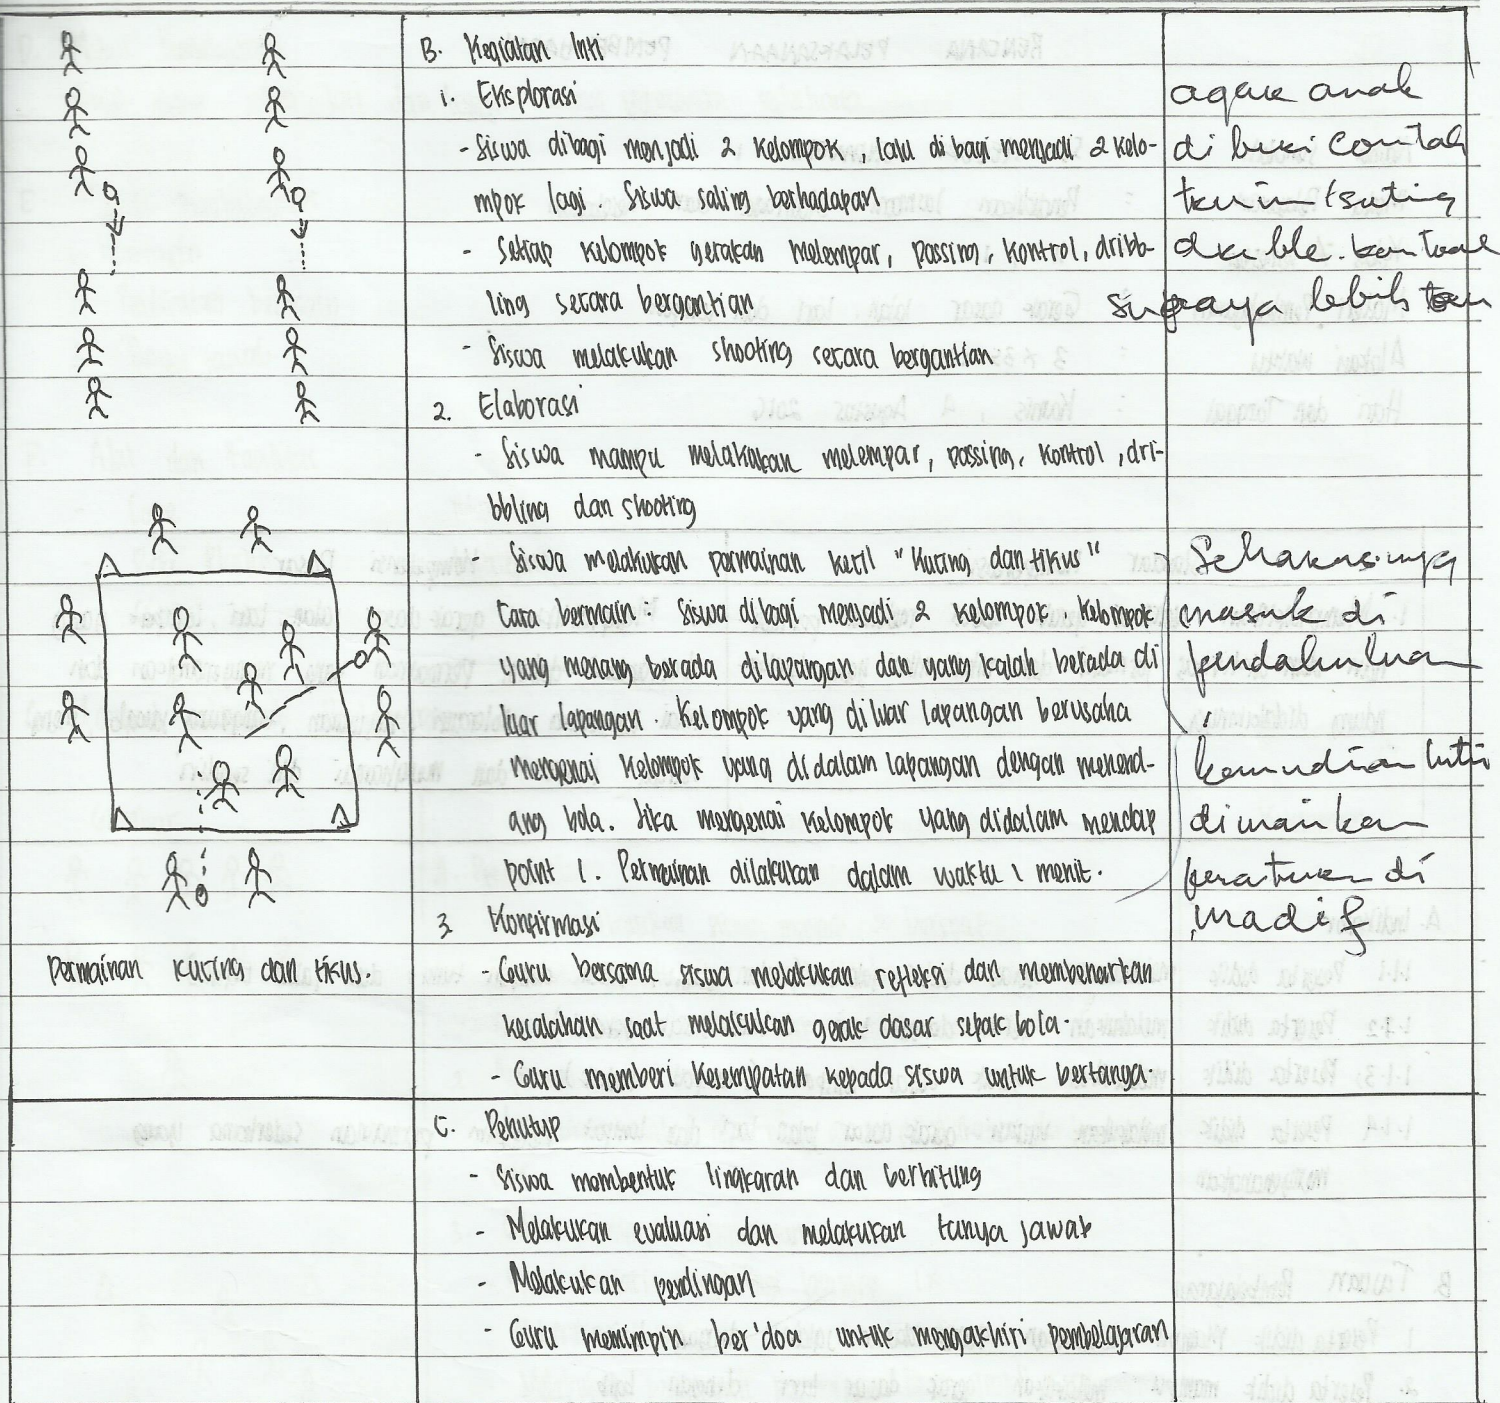 B. Kegiatan Inti
1. Eksplorasi
- Siswa dibagi menjadi 2 kelompok, lalu dibagi menjadi 2 kelo-
mpok lagi. Siswa saling berhadapan
- Setiap kelompok gerakan melempar, passing, kontrol, dribb-
ling secara bergantian
- Siswa melakukan shooting secara bergantian
2. Elaborasi
- Siswa mampu melakukan melempar, passing, kontrol, dri-
bbling dan shooting
- Siswa melakukan permainan kecil "Kucing dan tikus"
Cara bermain : Siswa dibagi menjadi 2 kelompok. Kelompok
yang menang berada dilapangan dan yang kalah berada di
luar lapangan. Kelompok yang diluar lapangan berusaha
mengenai kelompok yang didalam lapangan dengan menend-
ang bola. Jika mengenai kelompok yang didalam mendap
point 1. Permainan dilakukan dalam waktu 1 menit.
3 Konfirmasi
- Guru bersama siswa melakukan refleksi dan membenarkan
kesalahan saat melakukan gerak dasar sepak bola.
- Guru memberi kesempatan kepada siswa untuk bertanya.
C. Penutup
- Siswa membentuk lingkaran dan berhitung
- Melakukan evaluasi dan melakukan tanya jawab
- Melakukan pendingan
- Guru memimpin ber'doa untuk mengakhiri pembelajaran
Permainan kucing dan tikus.
agar anak
di beri contoh
supaya lebih
Seharusnya
masuk di
pendahuluan
kemudian inti
dimainkan
peraturan di
modif